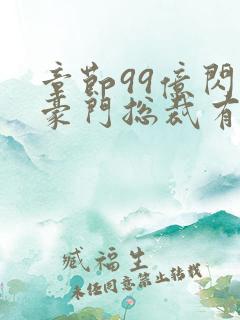 章節99億閃
豪門總裁有
臧福生
未任同意禁止轉載